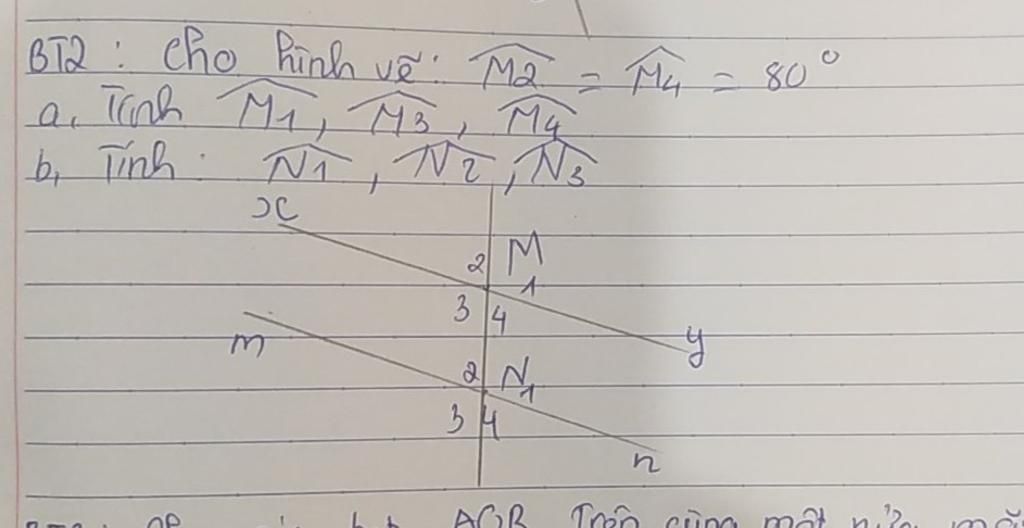 BT2: Cho hình vẽ: M2 = M4 = 80°
a, Tính M1, M3, M4
b, Tính: N1, N2, N3
x
2 M
1
3 4
y
m
2 N
1
3 4
n
AOB Trên cùng một nửa